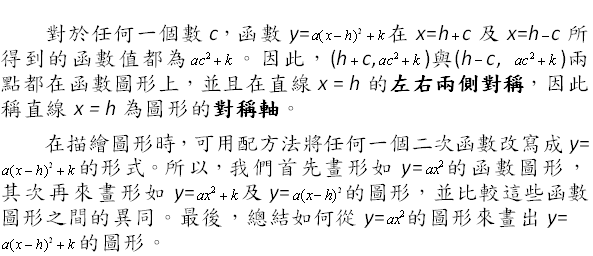 對於任何一個數 c，函數 y=a(x−h)²+k在 x=h+c 及 x=h−c 所
得到的函數值都為 ac²+k。因此，(h+c,ac²+k)與(h−c, ac²+k)兩
點都在函數圖形上，並且在直線 x = h 的左右兩側對稱，因此
稱直線 x = h 為圖形的對稱軸。
在描繪圖形時，可用配方法將任何一個二次函數改寫成 y=
a(x−h)²+k的形式。所以，我們首先畫形如 y=ax²的函數圖形，
其次再來畫形如 y=ax²+k及 y=a(x−h)²的圖形，並比較這些函數
圖形之間的異同。最後，總結如何從 y=ax²的圖形來畫出 y=
a(x−h)²+k的圖形。